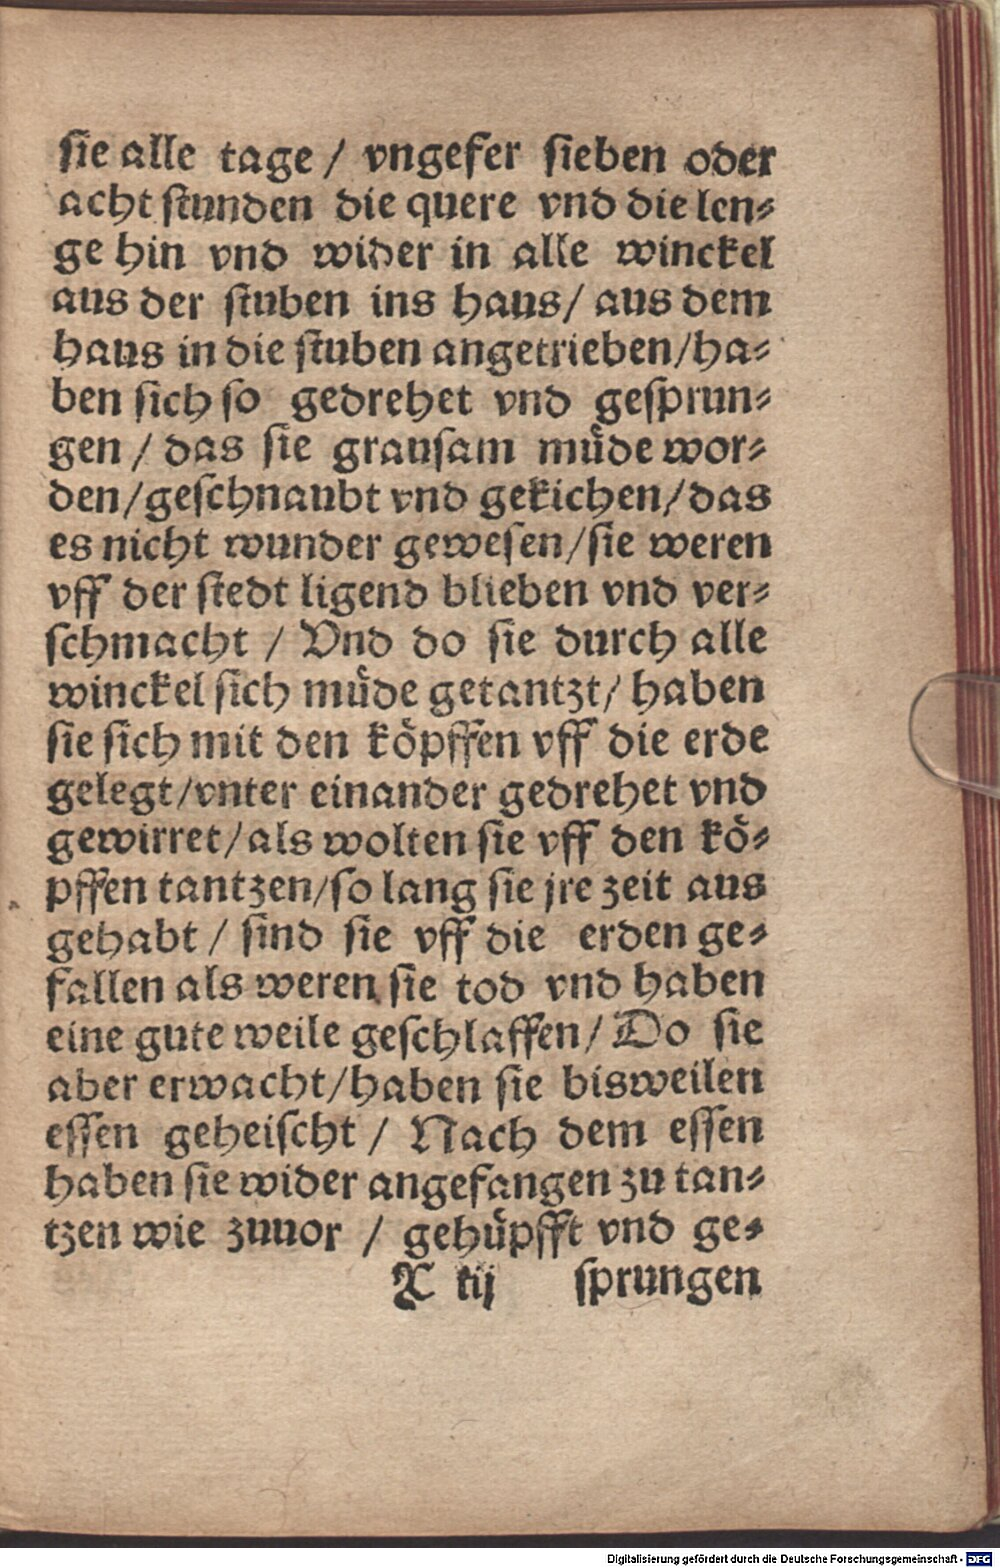 sie alle tage / vngefer sieben oder
acht stunden die quere vnd die len⸗
ge hin vnd wider in alle winckel
aus der stuben ins haus / aus dem
haus in die stuben angetrieben / ha⸗
ben sich so gedrehet vnd gesprun⸗
gen / das sie grausam müde wor⸗
den / geschnaubt vnd gekichen / das
es nicht wunder gewesen / sie weren
vff der stedt ligend blieben vnd ver⸗
schmacht / Vnd do sie durch alle
winckel sich müde getantzt / haben
sie sich mit den köpffen vff die erde
gelegt / vnter einander gedrehet vnd
gewirret / als wolten sie vff den kö⸗
pffen tantzen / so lang sie jre zeit aus
gehabt / sind sie vff die erden ge⸗
fallen als weren sie tod vnd haben
eine gute weile geschlaffen / Do sie
aber erwacht / haben sie bisweilen
essen geheischt / Nach dem essen
haben sie wider angefangen zu tan⸗
tzen wie zuuor / gehüpfft vnd ge⸗
X iij sprungen
Digitalisierung gefördert durch die Deutsche Forschungsgemeinschaft - DFG